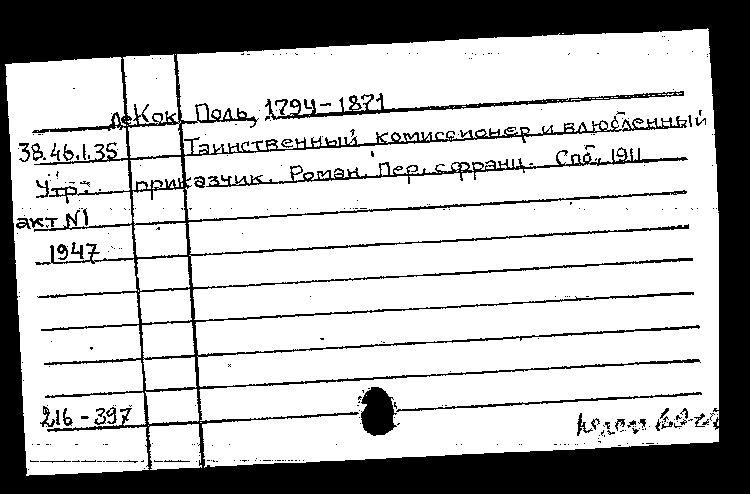 де Кок, Поль, 1794-1871
38.46.1.35 Таинственный комиссионер и влюбленный
Утр. приказчик. Роман. Пер. с франц. Спб., 1911
акт №1
1947
216-397